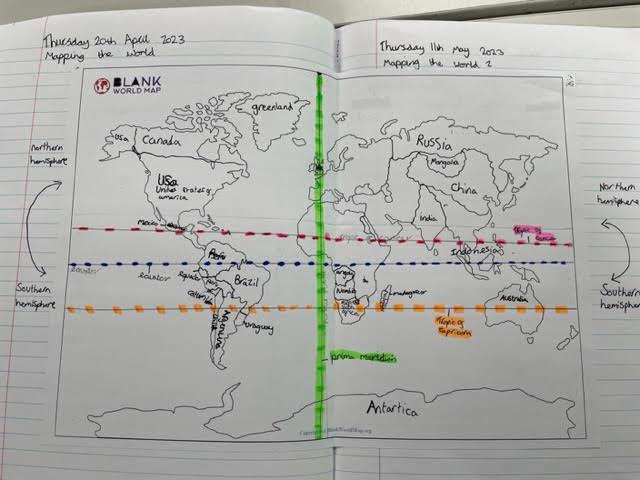 Thursday 20th April 2023
Mapping the world
Thursday 11th May 2023
Mapping the world 2
BLANK
WORLD MAP
greenland
USA
Canada
Russia
Mongolia
China
USA
United States of
america
India
northern
hemisphere
Northern
hemisphere
Mexico
Tropic of
Cancer
Indonesia
equator
equator
Peru
Brazil
Angola
Namibia
madagascar
Southern
hemisphere
Australia
Southern
hemisphere
South
africa
Argentina
Chile
Uruguay
Tropic of
Capricorn
prime meridian
Antartica